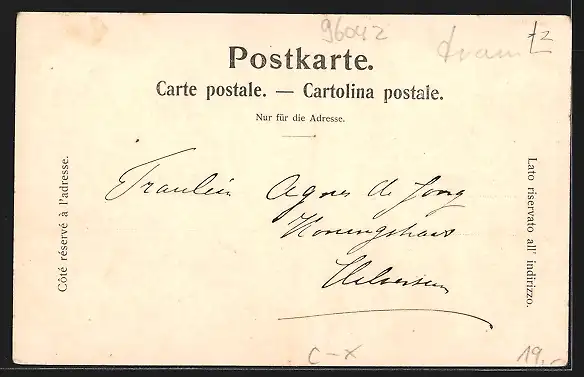 96042
tram
Postkarte.
Carte postale. — Cartolina postale.
Nur für die Adresse.
Côté réservé à l'adresse.
Fraulein Agnes de Jong
Koningshaus
Lato riservato all' indirizzo.
C-X
19.-